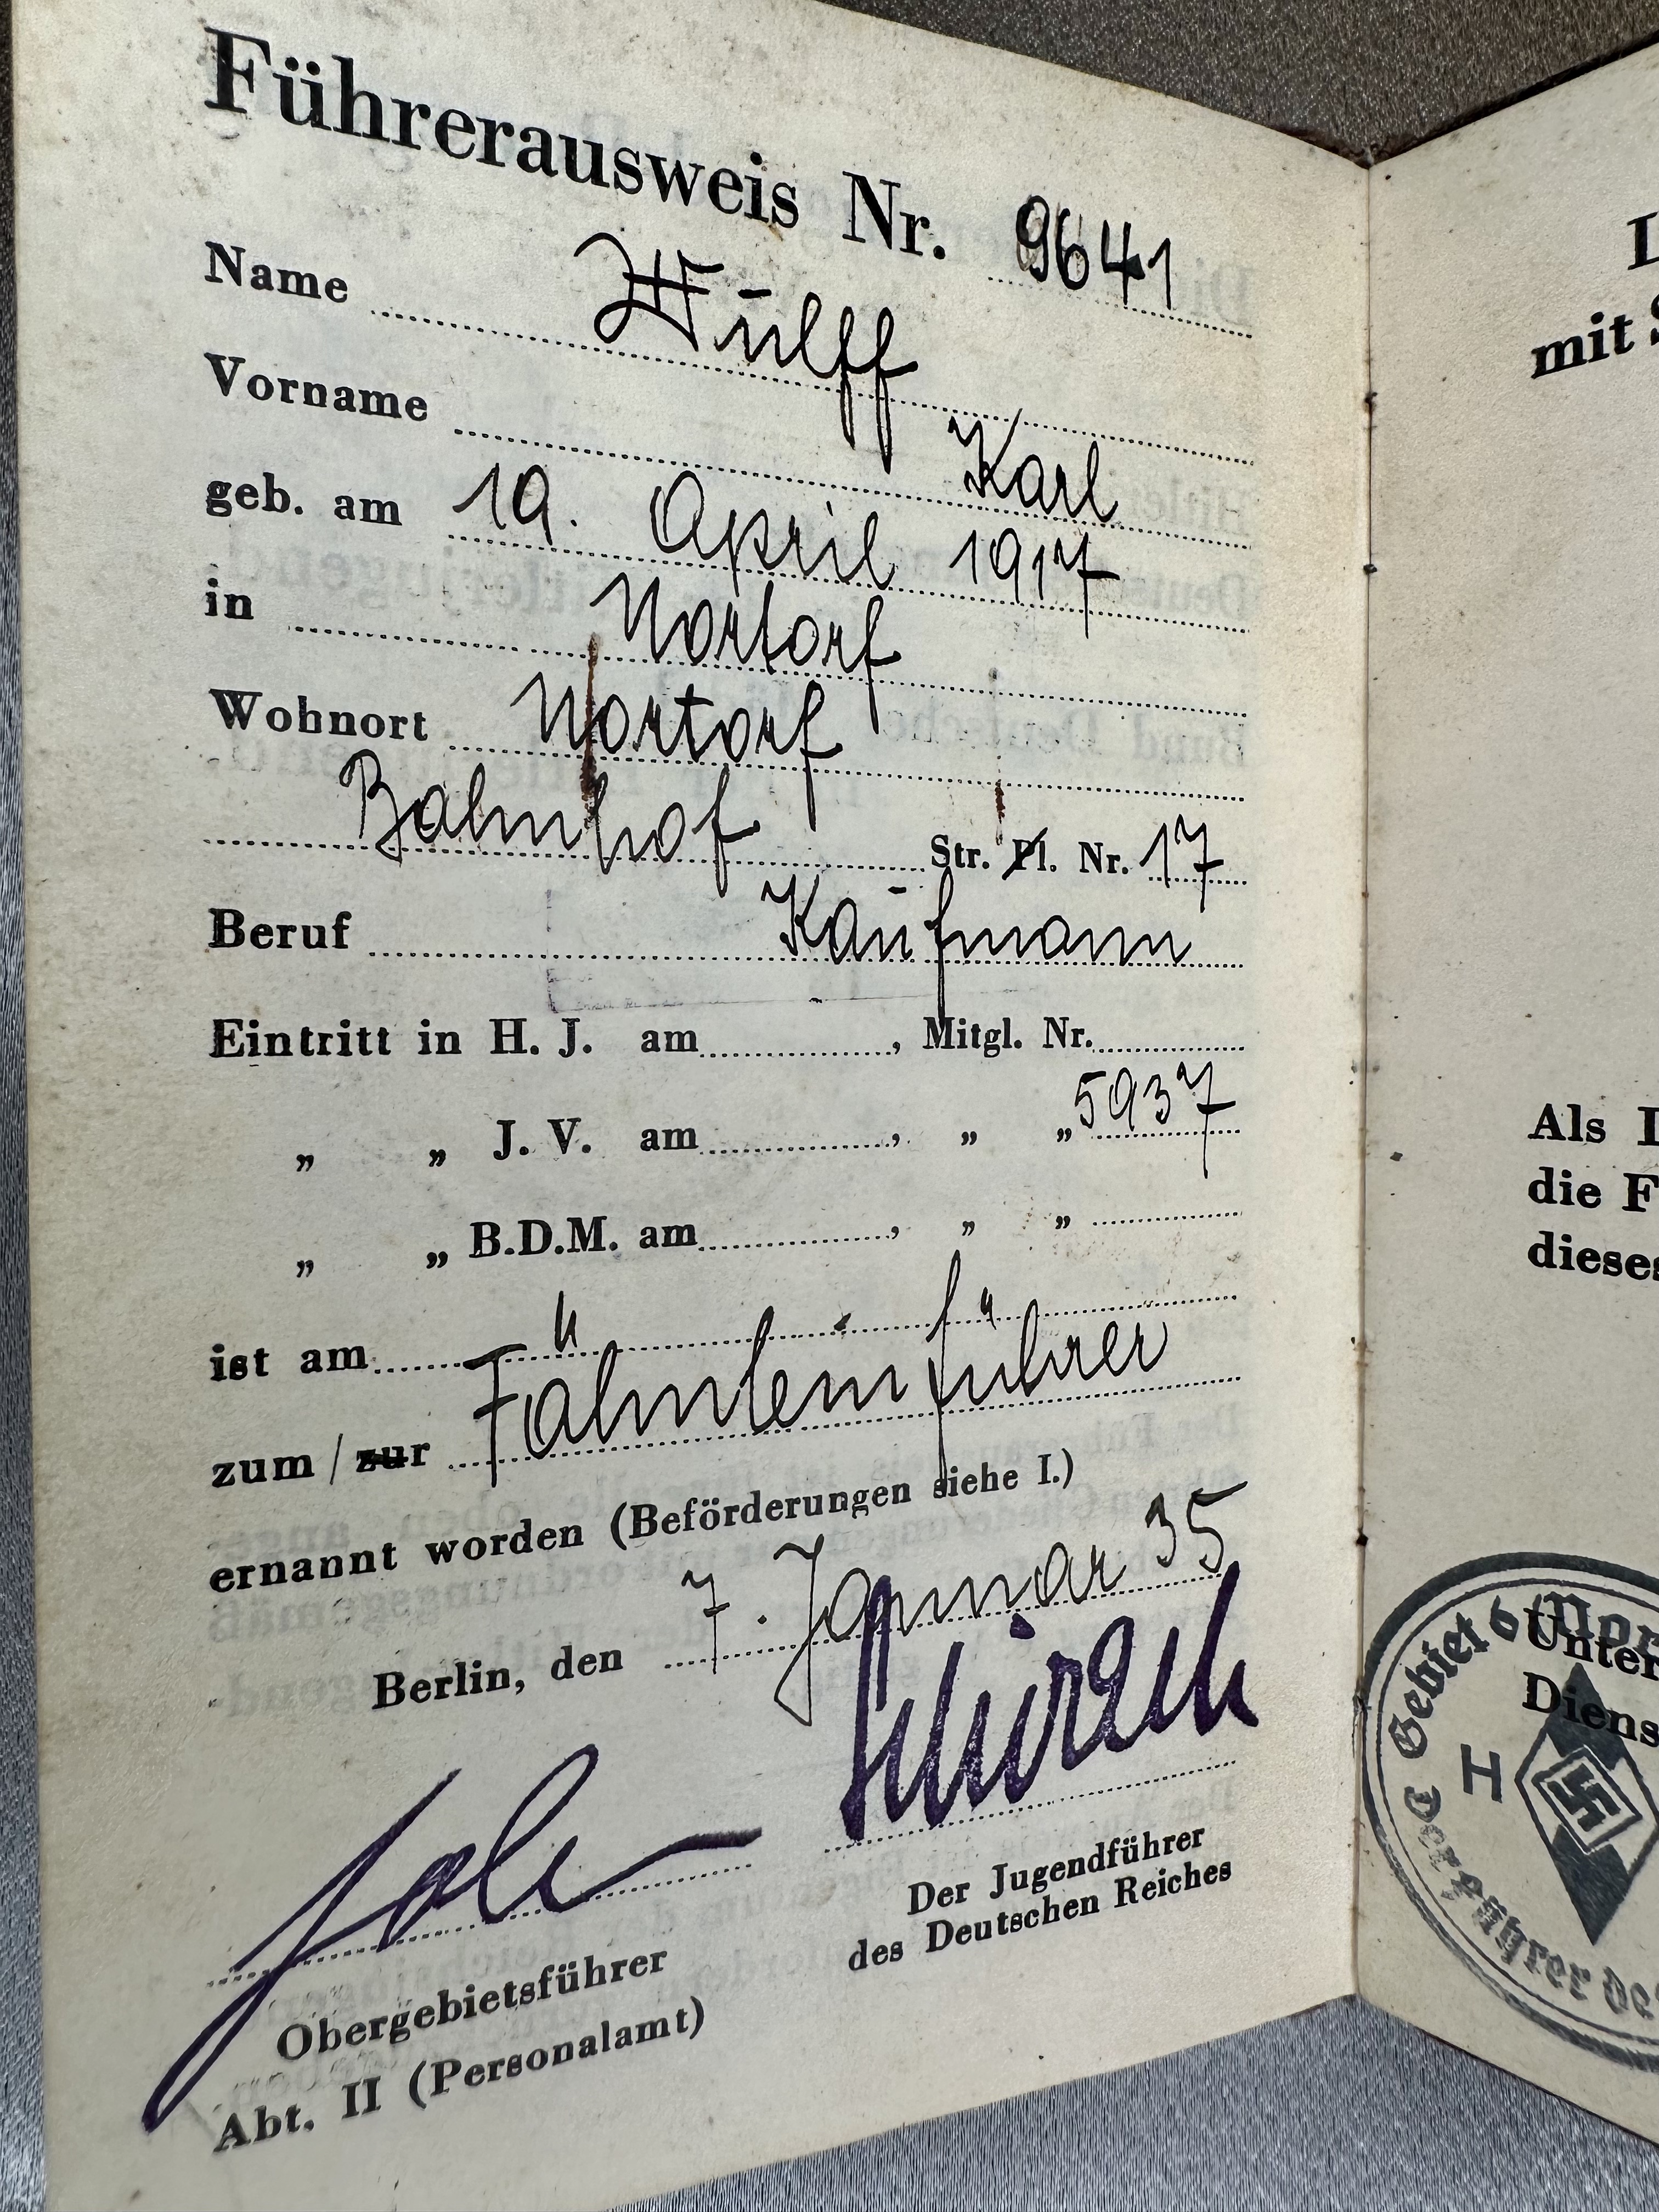 Führerausweis Nr. 9641
Name Wulff
Vorname Karl
geb. am 19. April 1917
in Nortorf
Wohnort Nortorf
Bahnhof Str. Pl. Nr. 17
Beruf Kaufmann
Eintritt in H. J. am , Mitgl. Nr.
„ „ J. V. am , „ „ 5937
„ „ B.D.M. am , „ „
ist am
zum / zur Fähnleinführer
ernannt worden (Beförderungen siehe I.)
Berlin, den 7. Januar 35
Schirach
Obergebietsführer
Abt. II (Personalamt)
Der Jugendführer
des Deutschen Reiches
mit
Als
die F
dieses
Unter
Diens
Gebiet 6 (Nor
H
Der Führer de